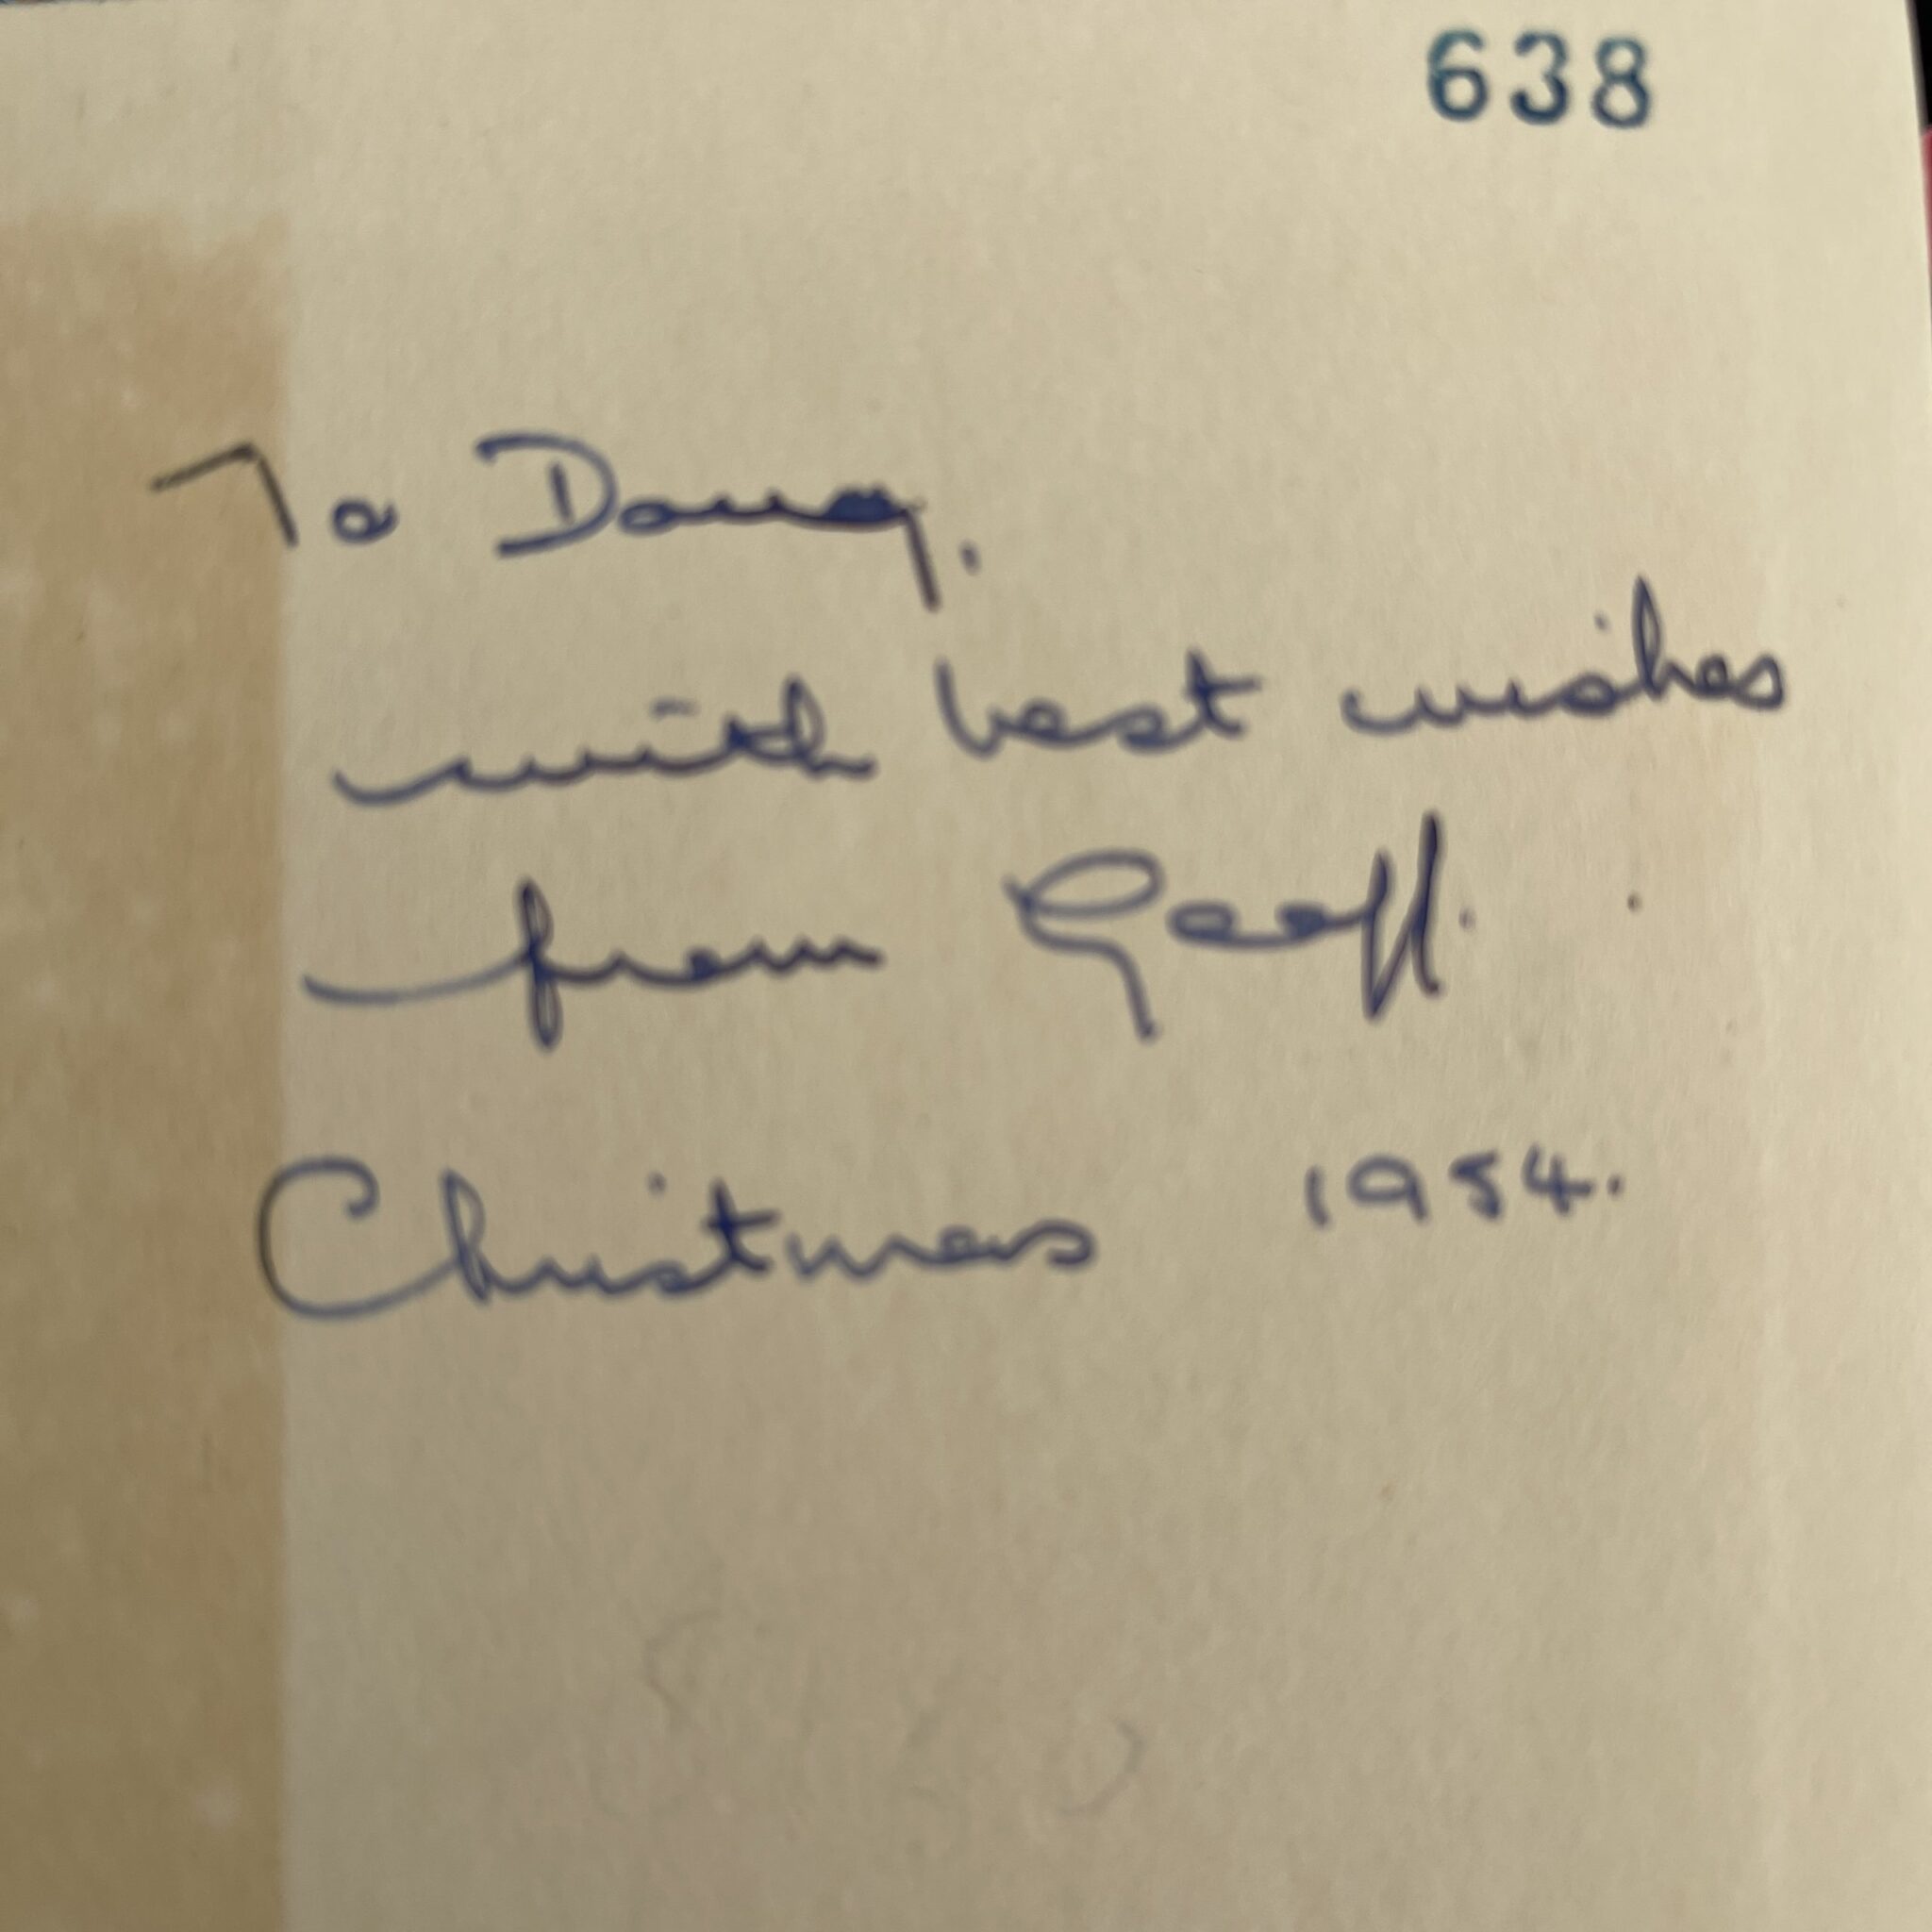 638
To Doug.
with best wishes
from Geoff.
Christmas 1954.